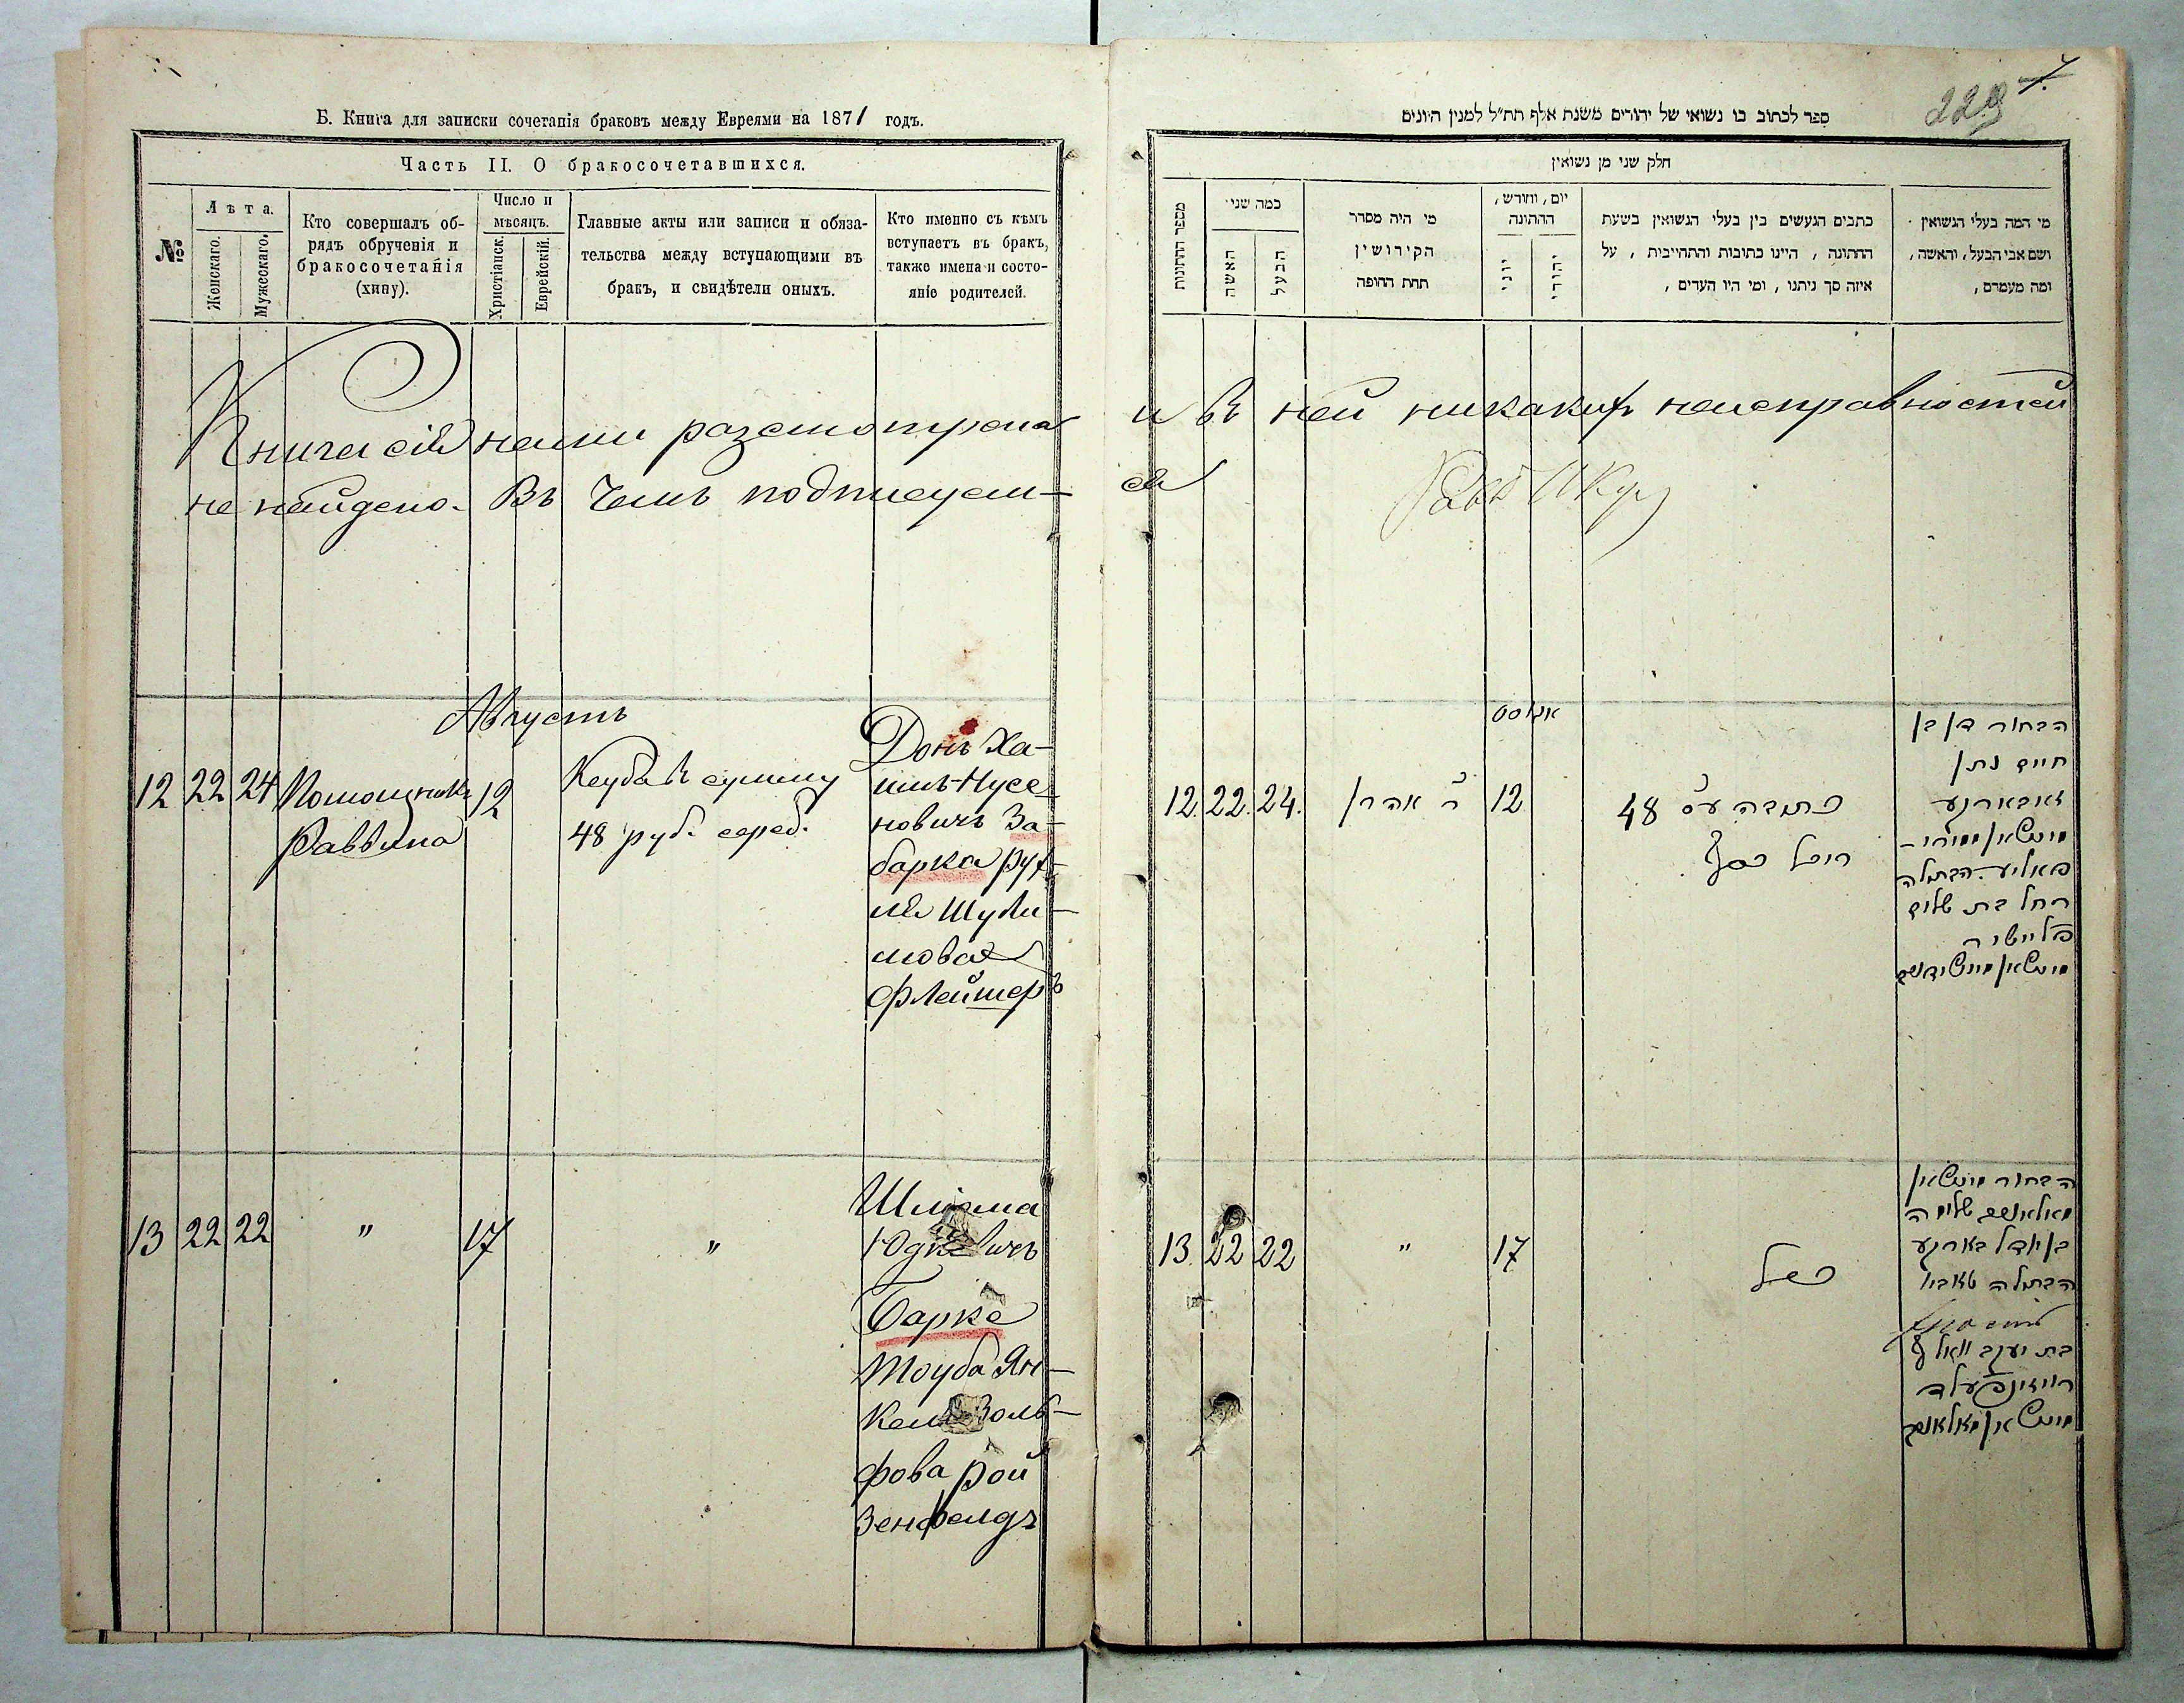 Б. Книга для записки сочетанія браковъ между Евреями на 1871 годъ.
Часть II. О бракосочетавшихся.
№
Лѣта.
Женскаго.
Мужескаго.
Кто совершалъ об-
рядъ обрученія и
бракосочетанія
(хипу).
Число и
мѣсяцъ.
Христіанск.
Еврейскій.
Главные акты или записи и обяза-
тельства между вступающими въ
бракъ, и свидѣтели оныхъ.
Кто именно съ кѣмъ
вступаетъ въ бракъ,
также имена и состо-
яніе родителей.
Книга сія нами разсмотрена
не найдено. Въ чемъ подписуем-
Августъ
12 22 24 Помощникъ 12
Раввина
Ктуба въ сумму
48 руб. сереб.
Донъ Ха-
имъ-Нусе-
новичъ За-
барка Рух-
ля Шули-
мова
Флейшеръ
13 22 22 " 17 "
Шлиома
Юдковичъ
Барке
Тоуба Ян-
Воль-
фова Рой
Зенфелдъ
ספר לכתוב בו נשואי של יהודים משנת אלף תת״ל למנין היונים
229
7.
חלק שני מן נשואין
מספר החתונות
כמה שני
האשה
הבעל
מי היה מסדר
הקידושין
תחת החופה
יום, וחודש,
החתונה
יוני
יהודי
כתבים הנעשים בין בעלי הנשואין בשעת
החתונה, היינו כתובות והתחייבות, על
איזה סך ניתנו, ומי היו העדים,
מי המה בעלי הנשואין
ושם אבי הבעל, והאשה,
ומה מעמדם,
и въ ней никакихъ неисправностей
ся
Равв
אגוסט
12. 22. 24. ר׳ אהרן 12
48
כסף
הבחור דן בן
חיים נתן
זאבארקע
הבתולה
רחל בת שלום
פליישר
13. 22 22 " 17
כנ״ל
הבחור
שלמה
בן יודל בארקע
הבתולה טאבע
בת יעקב וואלף
רויזענפעלד